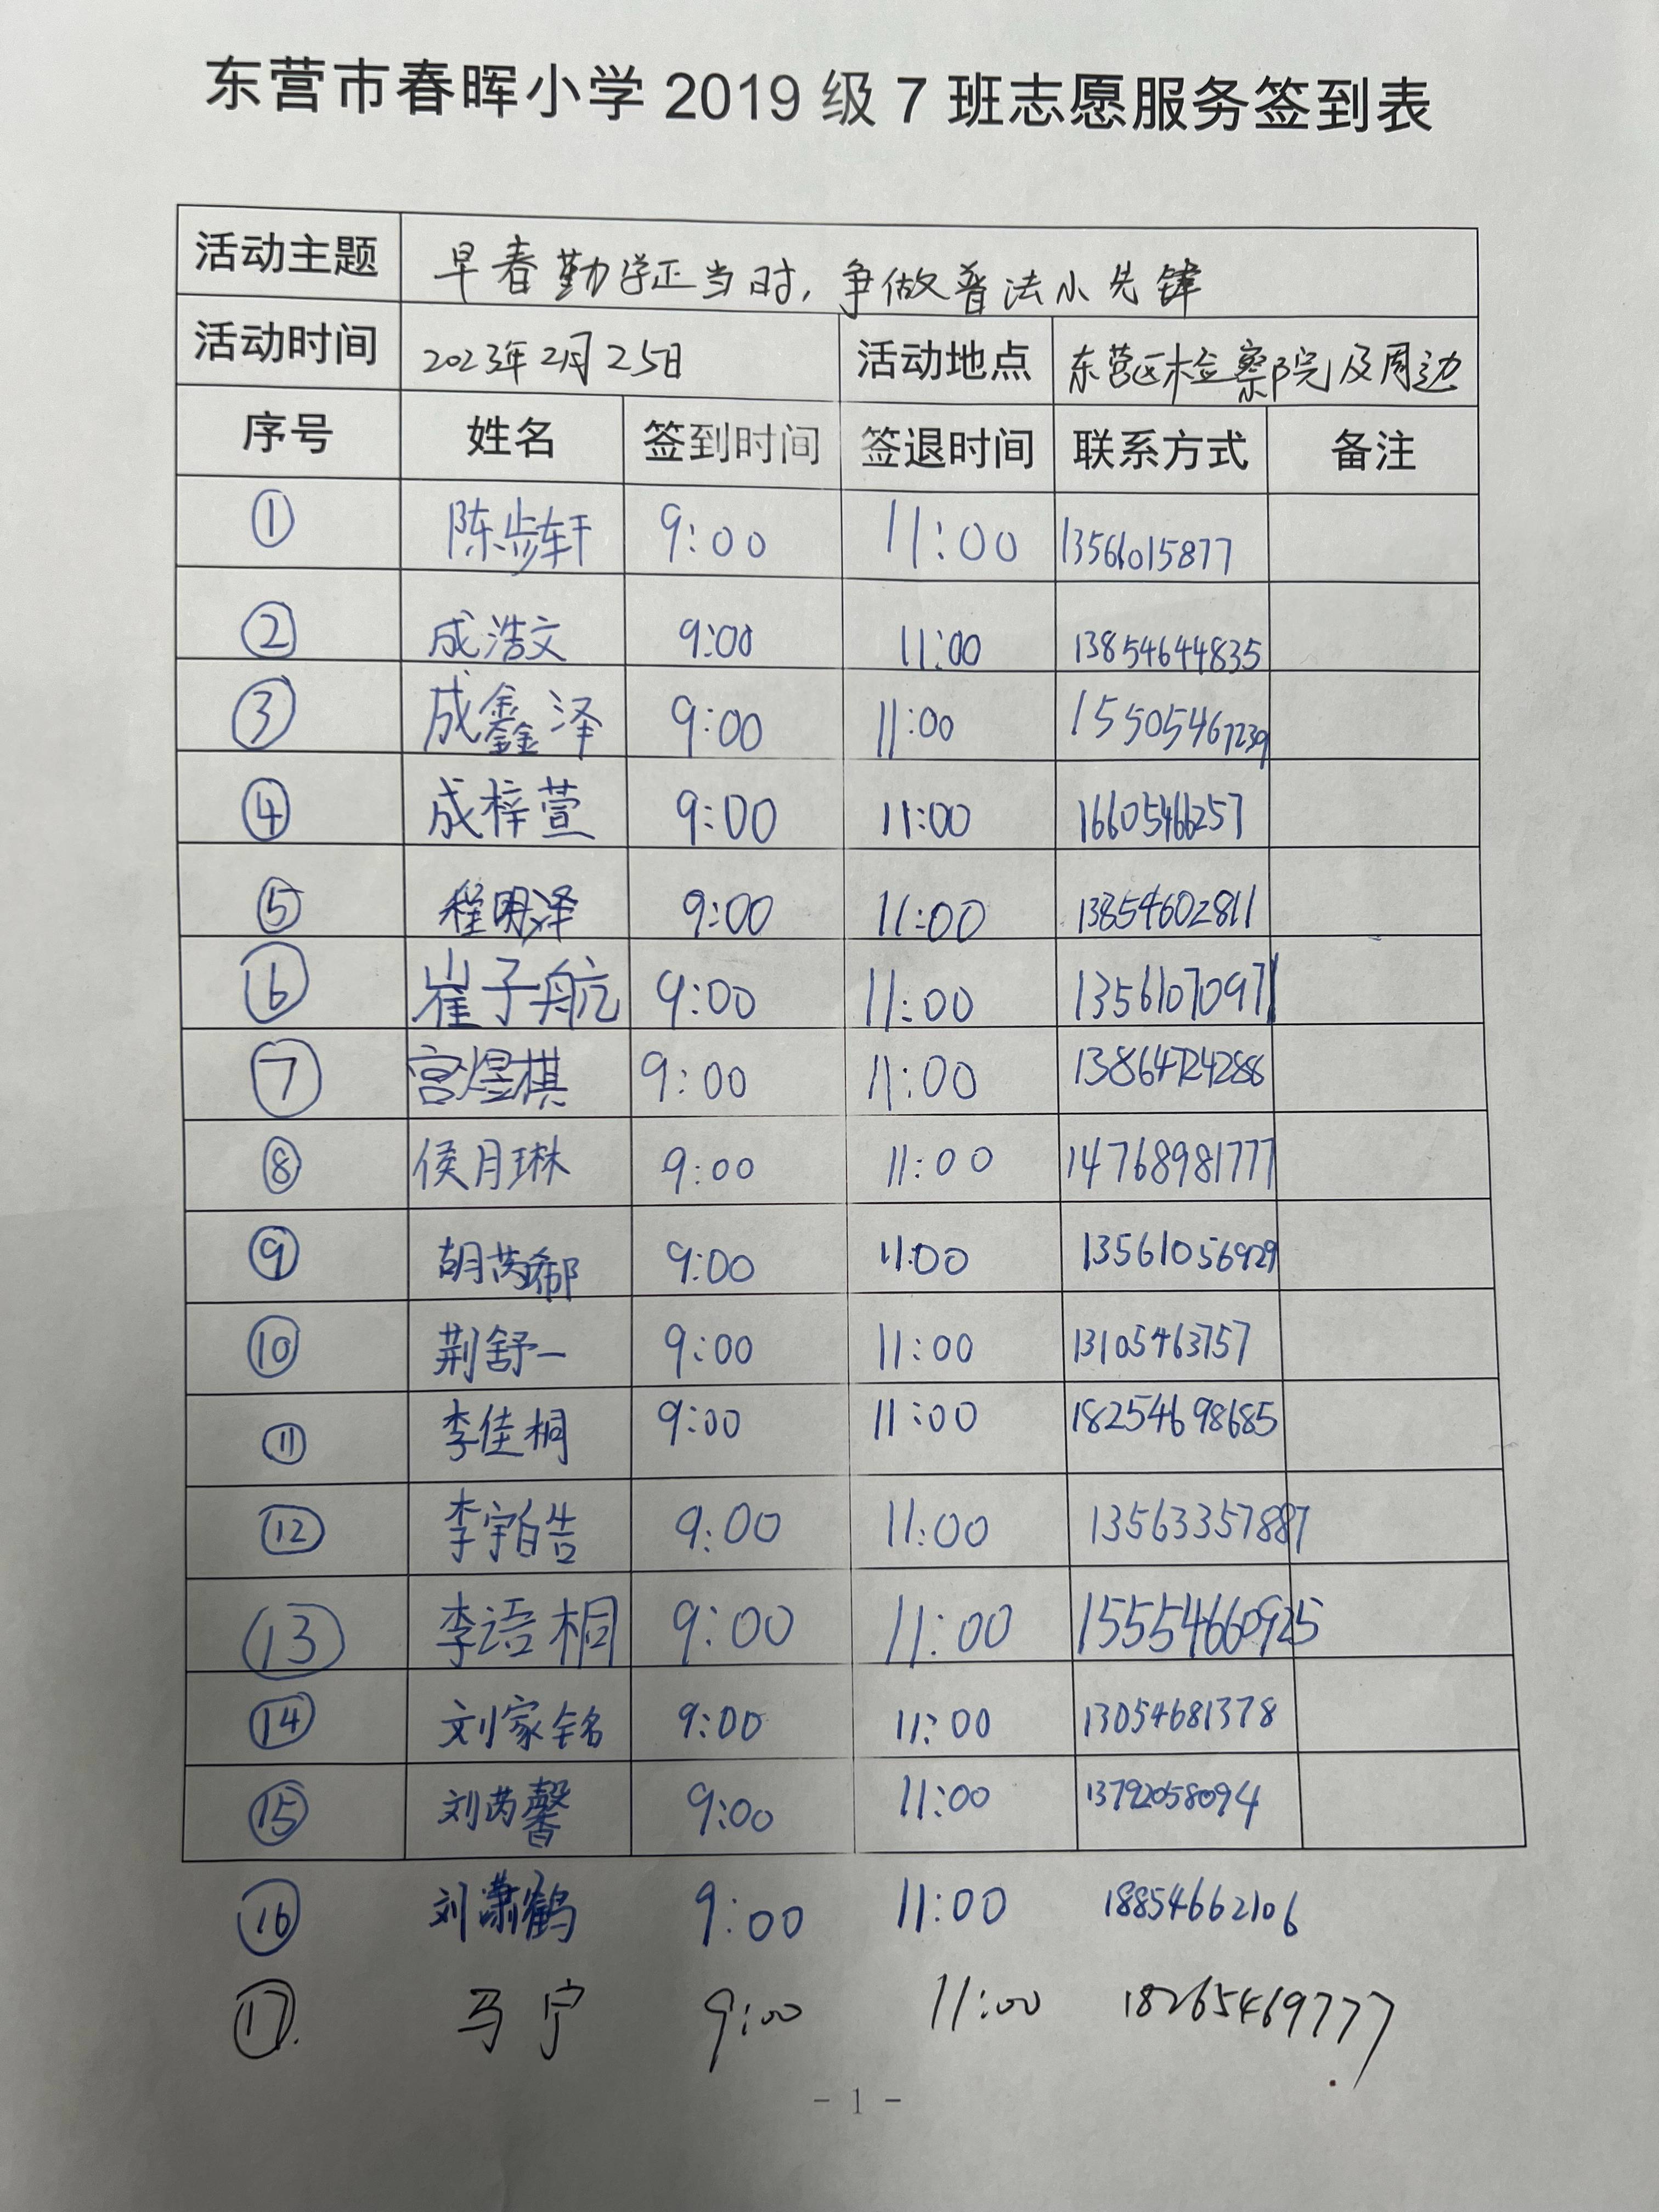 东营市春晖小学 2019 级 7 班志愿服务签到表
活动主题 早春勤学正当时，争做普法小先锋
活动时间 2023年2月25日 活动地点 东营区检察院及周边
序号 姓名 签到时间 签退时间 联系方式 备注
① 陈步轩 9:00 11:00 13561015877
② 成浩文 9:00 11:00 13854644835
③ 成鑫泽 9:00 11:00 15505467239
④ 成梓萱 9:00 11:00 16605466257
⑤ 程明泽 9:00 11:00 13854602811
⑥ 崔子航 9:00 11:00 13561070971
⑦ 宫煜棋 9:00 11:00 13864724288
⑧ 侯月琳 9:00 11:00 14768981777
⑨ 胡芮郗 9:00 11:00 13561056929
⑩ 荆舒一 9:00 11:00 13105463757
⑪ 李佳桐 9:00 11:00 18254698685
⑫ 李宇皓 9:00 11:00 13563357887
⑬ 李语桐 9:00 11:00 15554660925
⑭ 刘家铭 9:00 11:00 13054681378
⑮ 刘芮馨 9:00 11:00 13792058094
⑯ 刘潇鹤 9:00 11:00 18854662106
⑰ 马宁 9:00 11:00 18265469777
- 1 -